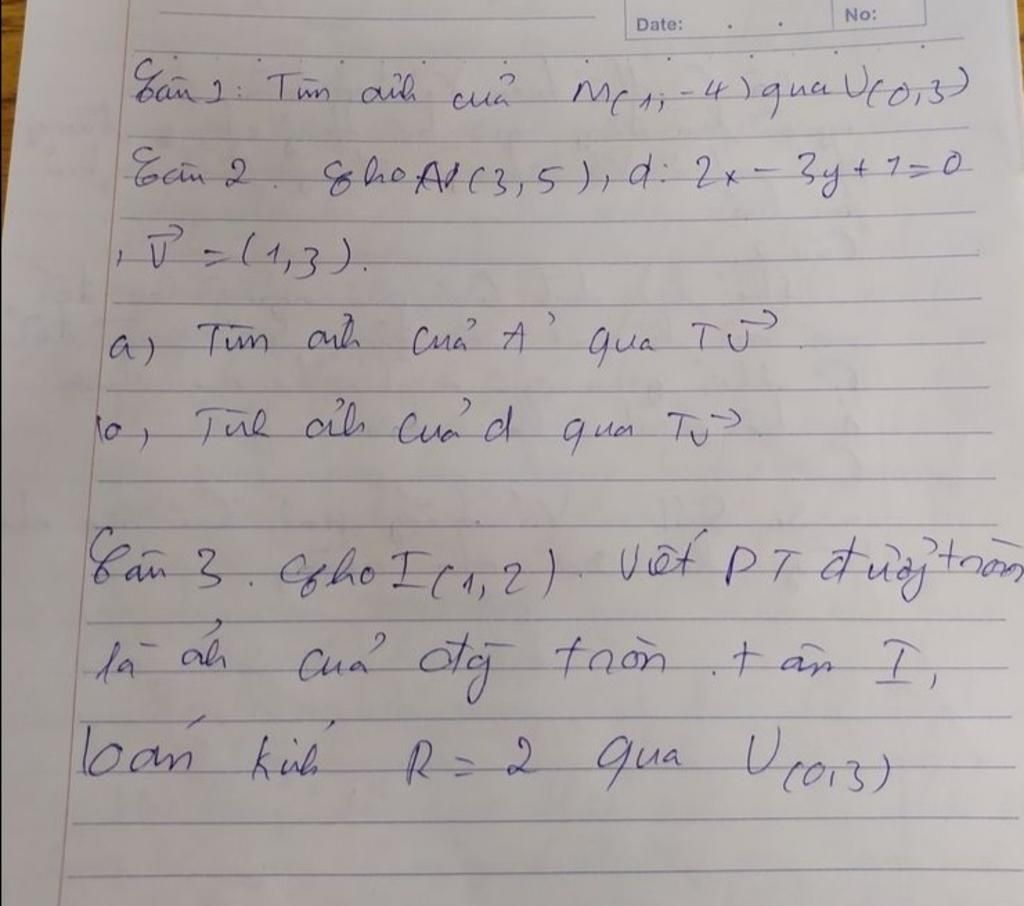 Date: . . No:
Câu 1: Tìm ảnh của M(1; -4) qua V(0,3)
Câu 2. Cho A(3,5), d: 2x - 3y + 1 = 0
, v⃗ = (1,3).
a, Tìm ảnh của A qua Tv⃗
b, Tìm ảnh của d qua Tv⃗
Câu 3. Cho I(1,2). Viết PT đường tròn
là ảnh của đtg tròn tâm I,
bán kính R = 2 qua V(0,3)